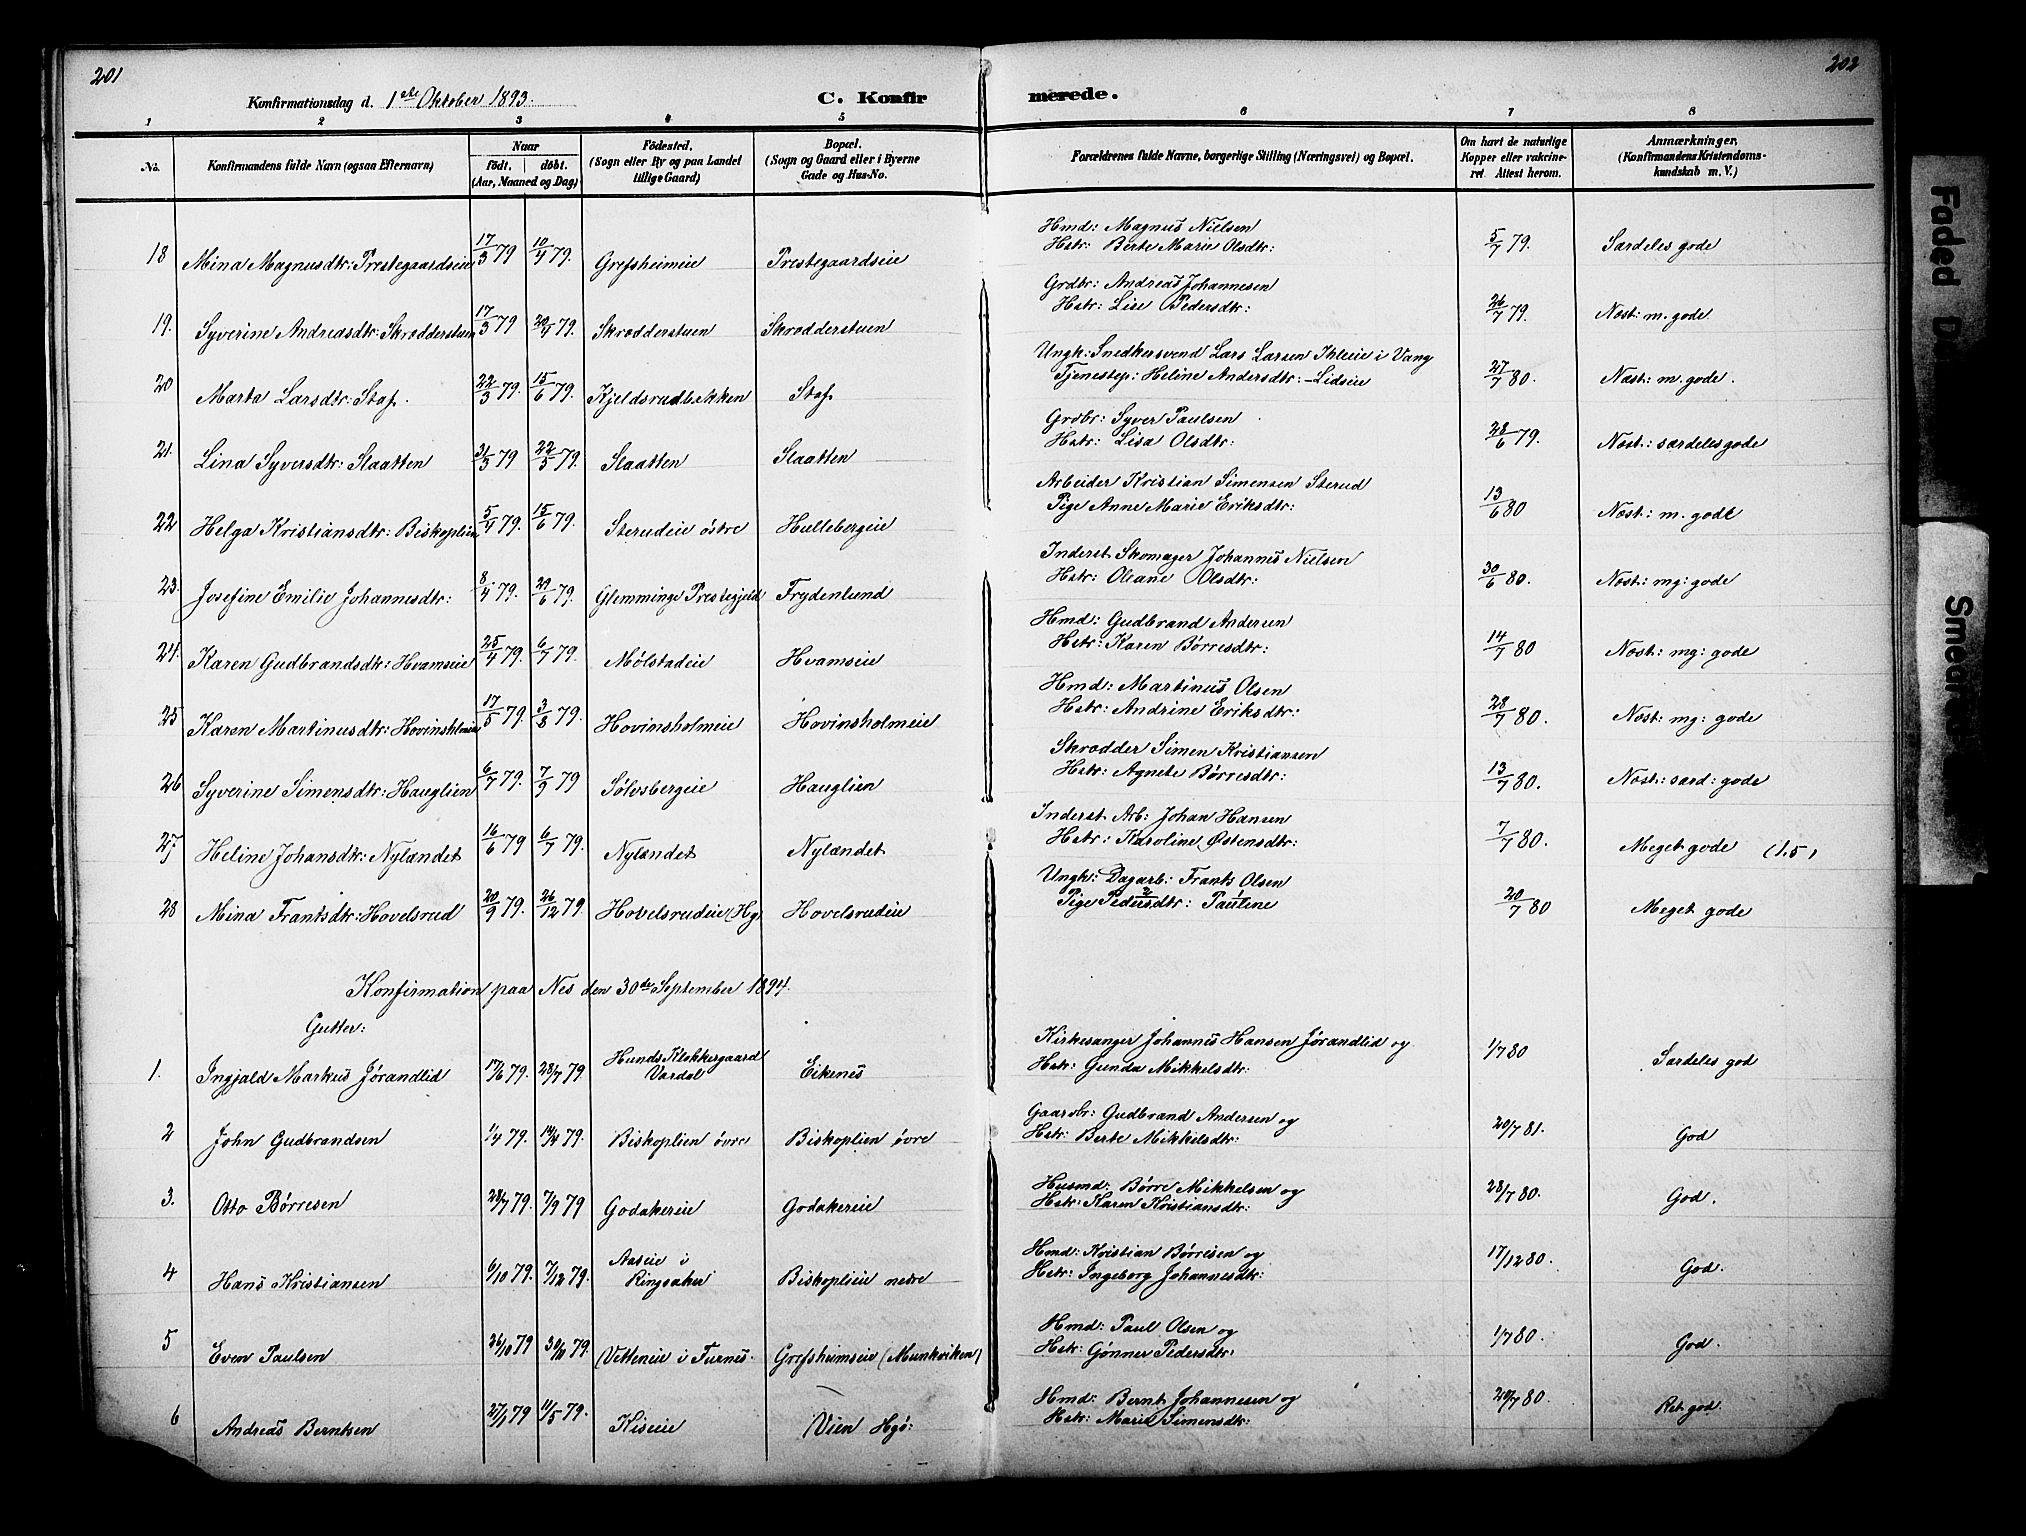 201
202
Konfirmationsdag d. 1ste Oktober 1893.
C. Konfir merede.
1 2 3 4 5 6 7 8
No. Konfirmandens fulde Navn (ogsaa Efternavn) Naar født. døbt. (Aar, Maaned og Dag) Fødested. (Sogn eller By og paa Landet tillige Gaard) Bopæl. (Sogn og Gaard eller i Byerne Gade og Hus-No. Forældrenes fulde Navne, borgerlige Stilling (Næringsvei) og Bopæl. Om havt de naturlige Kopper eller vakcineret. Attest herom. Anmærkninger. (Konfirmandens Kristendomskundskab m. V.)
18 Mina Magnusdtr: Prestegaardseie 17/3 79 10/4 79. Grefsheimeie Prestegaardseie Hmd: Magnus Nielsen Hstr: Berte Marie Olsdtr: 5/7 79. Særdeles gode
19. Syverine Andreasdtr: Skrædderstuen 17/3 79 20/4 79. Skrædderstuen Skrædderstuen Grdbr: Andreas Johannesen Hstr: Lise Pedersdtr: 26/7 79. Næst: m. gode
20 Marta Larsdtr: Staf. 22/3 79. 15/6 79. Kjeldsrudbakken Staf Ungk: Snedkersvend Lars Larsen Ihleie i Vang Tjenestep: Heline Andersdtr: Lidseie 27/7 80. Næst: m. gode.
21. Lina Syversdtr: Slaatten 31/3 79 22/5 79. Slaatten Slaatten Grdbr: Syver Paulsen Hstr: Lisa Olsdtr: 28/6 79. Næst: særdeles gode
22 Helga Kristiansdtr: Biskoplien 5/4 79. 15/6 79. Sterudeie østre Hullebergeie Arbeider Kristian Simensen Sterud Pige Anne Marie Eriksdtr: 13/6 80 Næst: m. gode
23. Josefine Emilie Johannesdtr: 8/4 79. 29/6 79. Glemminge Prestegjeld Frydenlund Inderst Skomager Johannes Nielsen Hstr: Oleane Olsdtr: 30/6 80. Næst: mg: gode
24. Karen Gudbrandsdtr: Hvamseie 25/4 79. 6/7 79. Mølstadeie Hvamseie Hmd: Gudbrand Andersen Hstr: Karen Børresdtr: 14/7 80 Næst: mg: gode
25 Karen Martinusdtr: Hovinsholmeie 17/5 79. 3/8 79. Hovinsholmeie Hovinsholmeie Hmd: Martinus Olsen Hstr: Andrine Eriksdtr: 28/7 80. Næst: mg: gode
26 Syverine Simensdtr: Hauglien 6/7 79. 7/9 79 Sølvsbergeie Hauglien Skrædder Simen Kristiansen Hstr: Agnete Børresdtr: 13/7 80. Næst: særd: gode
27. Heline Johansdtr: Nylændet 16/6 79 6/7 79. Nylændet Nylændet Inderst Arb: Johan Hansen Hstr: Karoline Østensdtr: 7/7 80. Meget gode (1.5)
28 Mina Frantsdtr: Hovelsrud 20/9 79. 26/12 79. Hovelsrudeie (Hg) Hovelsrudeie Ungk: Dagarb: Frants Olsen Pige Pedersdtr: Pauline 20/7 80 Meget gode
Konfirmation paa Nes den 30de September 1894.
Gutter:
1. Ingjald Markus Jørandlid 17/6 79. 28/7 79 Hunds Klokkergaard Vardal Eikenes Kirkesanger Johannes Hansen Jørandlid og Hstr: Gunda Mikkelsdtr: 1/7 80 Særdeles god
2 John Gudbrandsen 1/4 79. 14/4 79. Biskoplien øvre Biskoplien øvre Gaardbr: Gudbrand Andersen og Hstr: Berte Mikkelsdtr: 20/7 81. God
3. Otto Børresen 28/7 79. 7/9 79 Godakereie Godakereie Husmd: Børre Mikkelsen og Hstr: Karen Kristiansdtr: 28/7 80. God.
4 Hans Kristiansen 6/10 79. 7/12 79. Aaseie i Ringsaker Biskoplieie nedre Hmd: Kristian Børresen og Hstr: Ingeborg Johannesdtr: 17/12 80. God.
5 Even Paulsen 26/10 79 30/11 79. Vetteneie i Furnes. Grefsheimseie (Munkviken) Hmd: Paul Olsen og Hstr: Gønner Pedersdtr: 1/7 80. God.
6 Andreas Berntsen 27/1 79 11/5 79. Kiseie Vien Hgø: Hmd: Bernt Johannesen og Hstr: Marie Simensdtr: 20/7 80. Ret god.
Faded